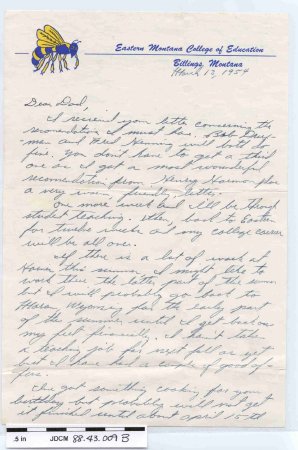 Eastern Montana College of Education
Billings, Montana
March 13, 1954
Dear Dad,
I received your letter concerning the
recomendation I must have. Bob
man and Fred will both be
fine. You don't have to get a third
one as I got a most wonderful
recomendation from Henry plus
a very warm friendly letter.
One more week and I'll be through
student teaching. Then back to Eastern
for twelve weeks and my college career
will be all over.
If there is a lot of work at
Home this summer I might like to
work there the latter part of the summer
but I will probably go back to
Wyoming for the early part
of the summer until I get back on
my feet financially. I haven't taken
a teaching job for next fall as yet
but I have had a couple of good of-
fers.
I've got something cooking for your
birthday but probably will not get
it finished until about april 15th
.5 in
JDCM 88.43.009B